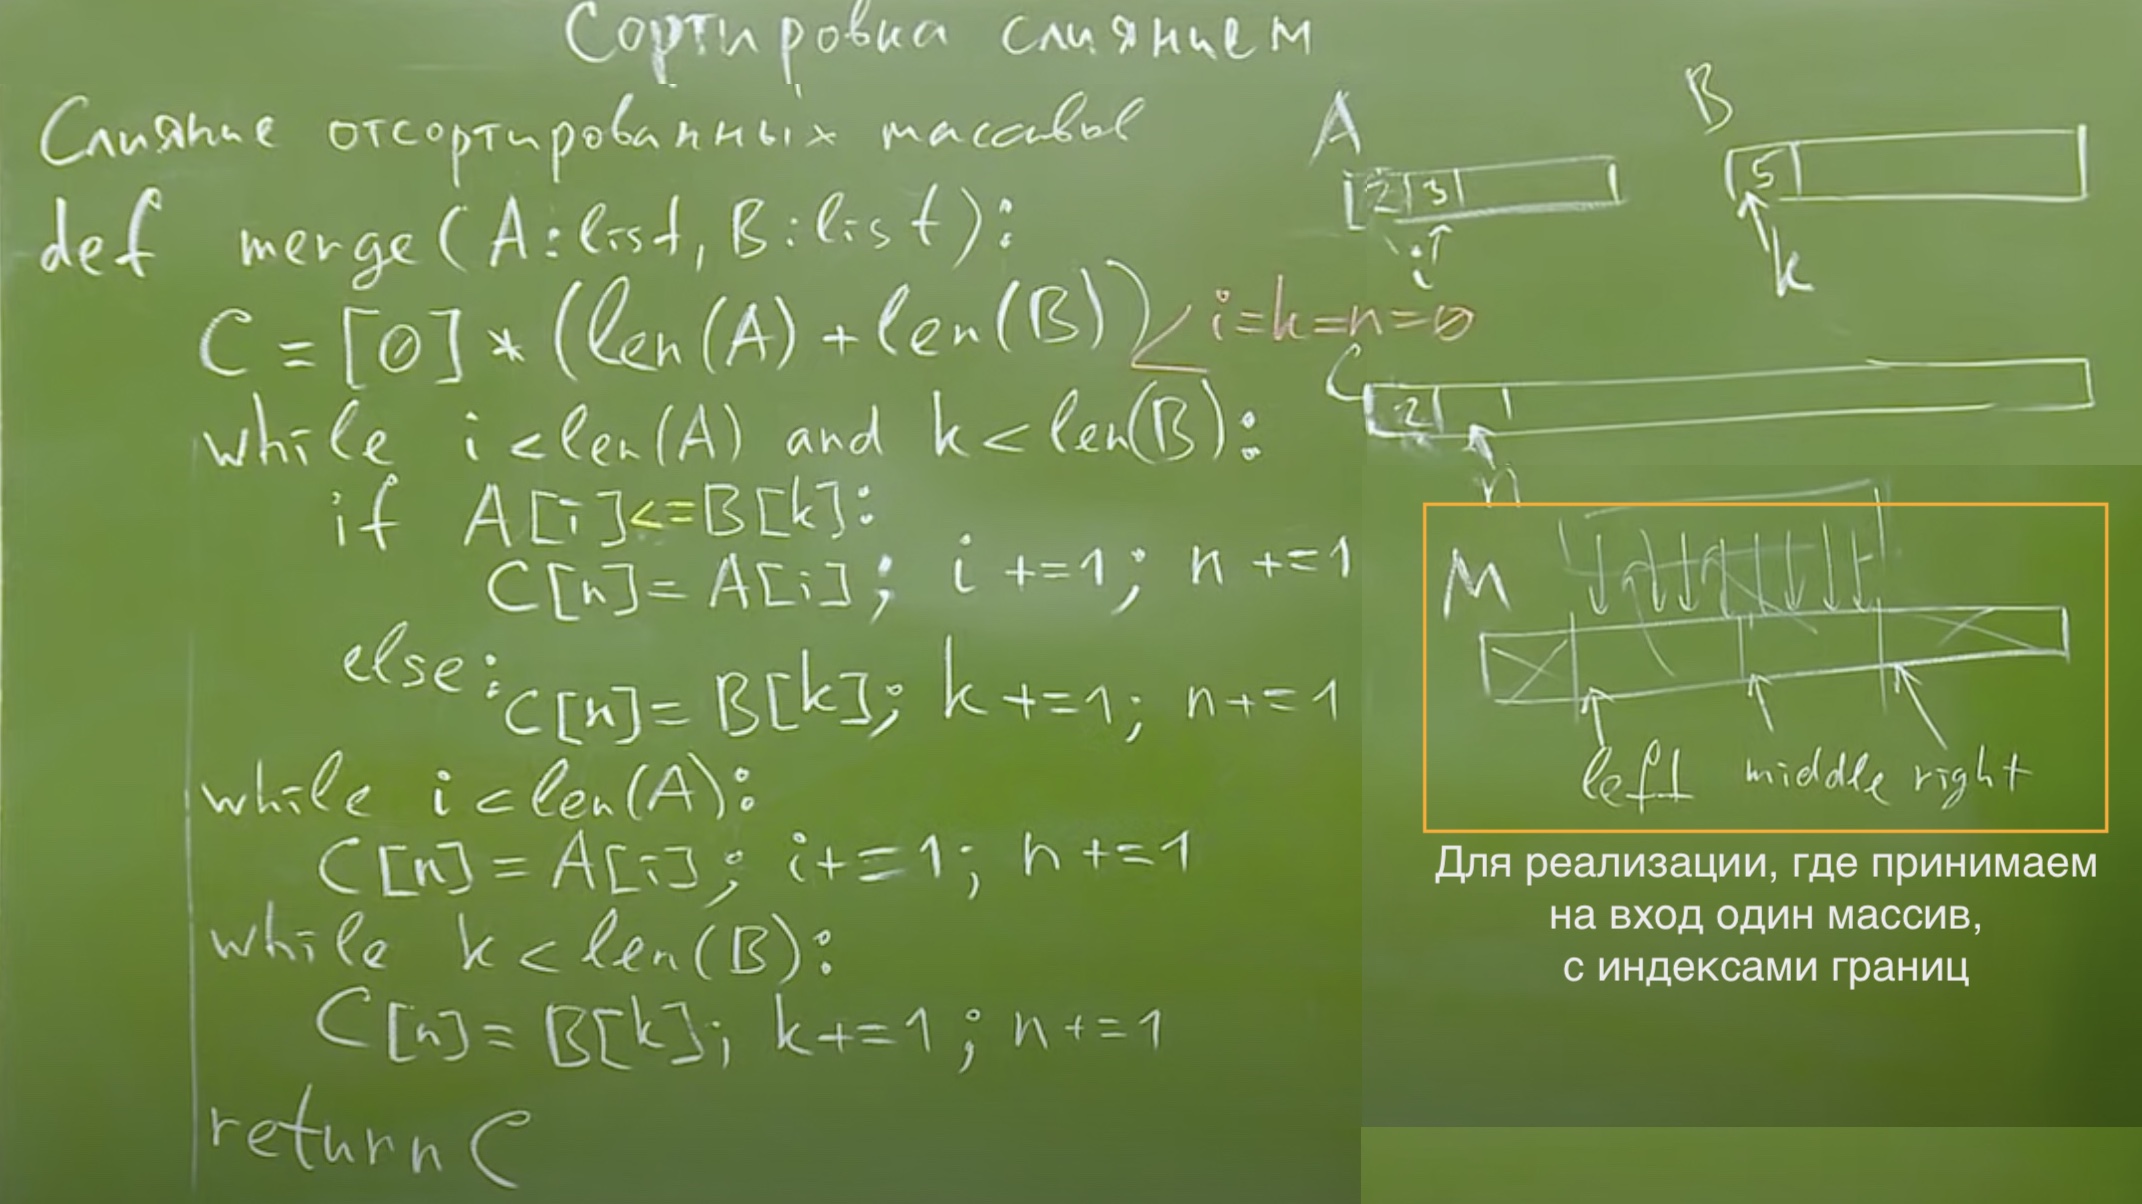 Сортировка слиянием
Слияние отсортированных массивов
def merge(A:list, B:list):
C = [0] * (len(A) + len(B))
i=k=n=0
while i<len(A) and k<len(B):
if A[i]<=B[k]:
C[n]=A[i]; i+=1; n+=1
else: C[n]=B[k]; k+=1; n+=1
while i<len(A):
C[n]=A[i]; i+=1; n+=1
while k<len(B):
C[n]=B[k]; k+=1; n+=1
return C
A
2 3
i
B
5
k
C
2
n
M
left middle right
Для реализации, где принимаем
на вход один массив,
с индексами границ